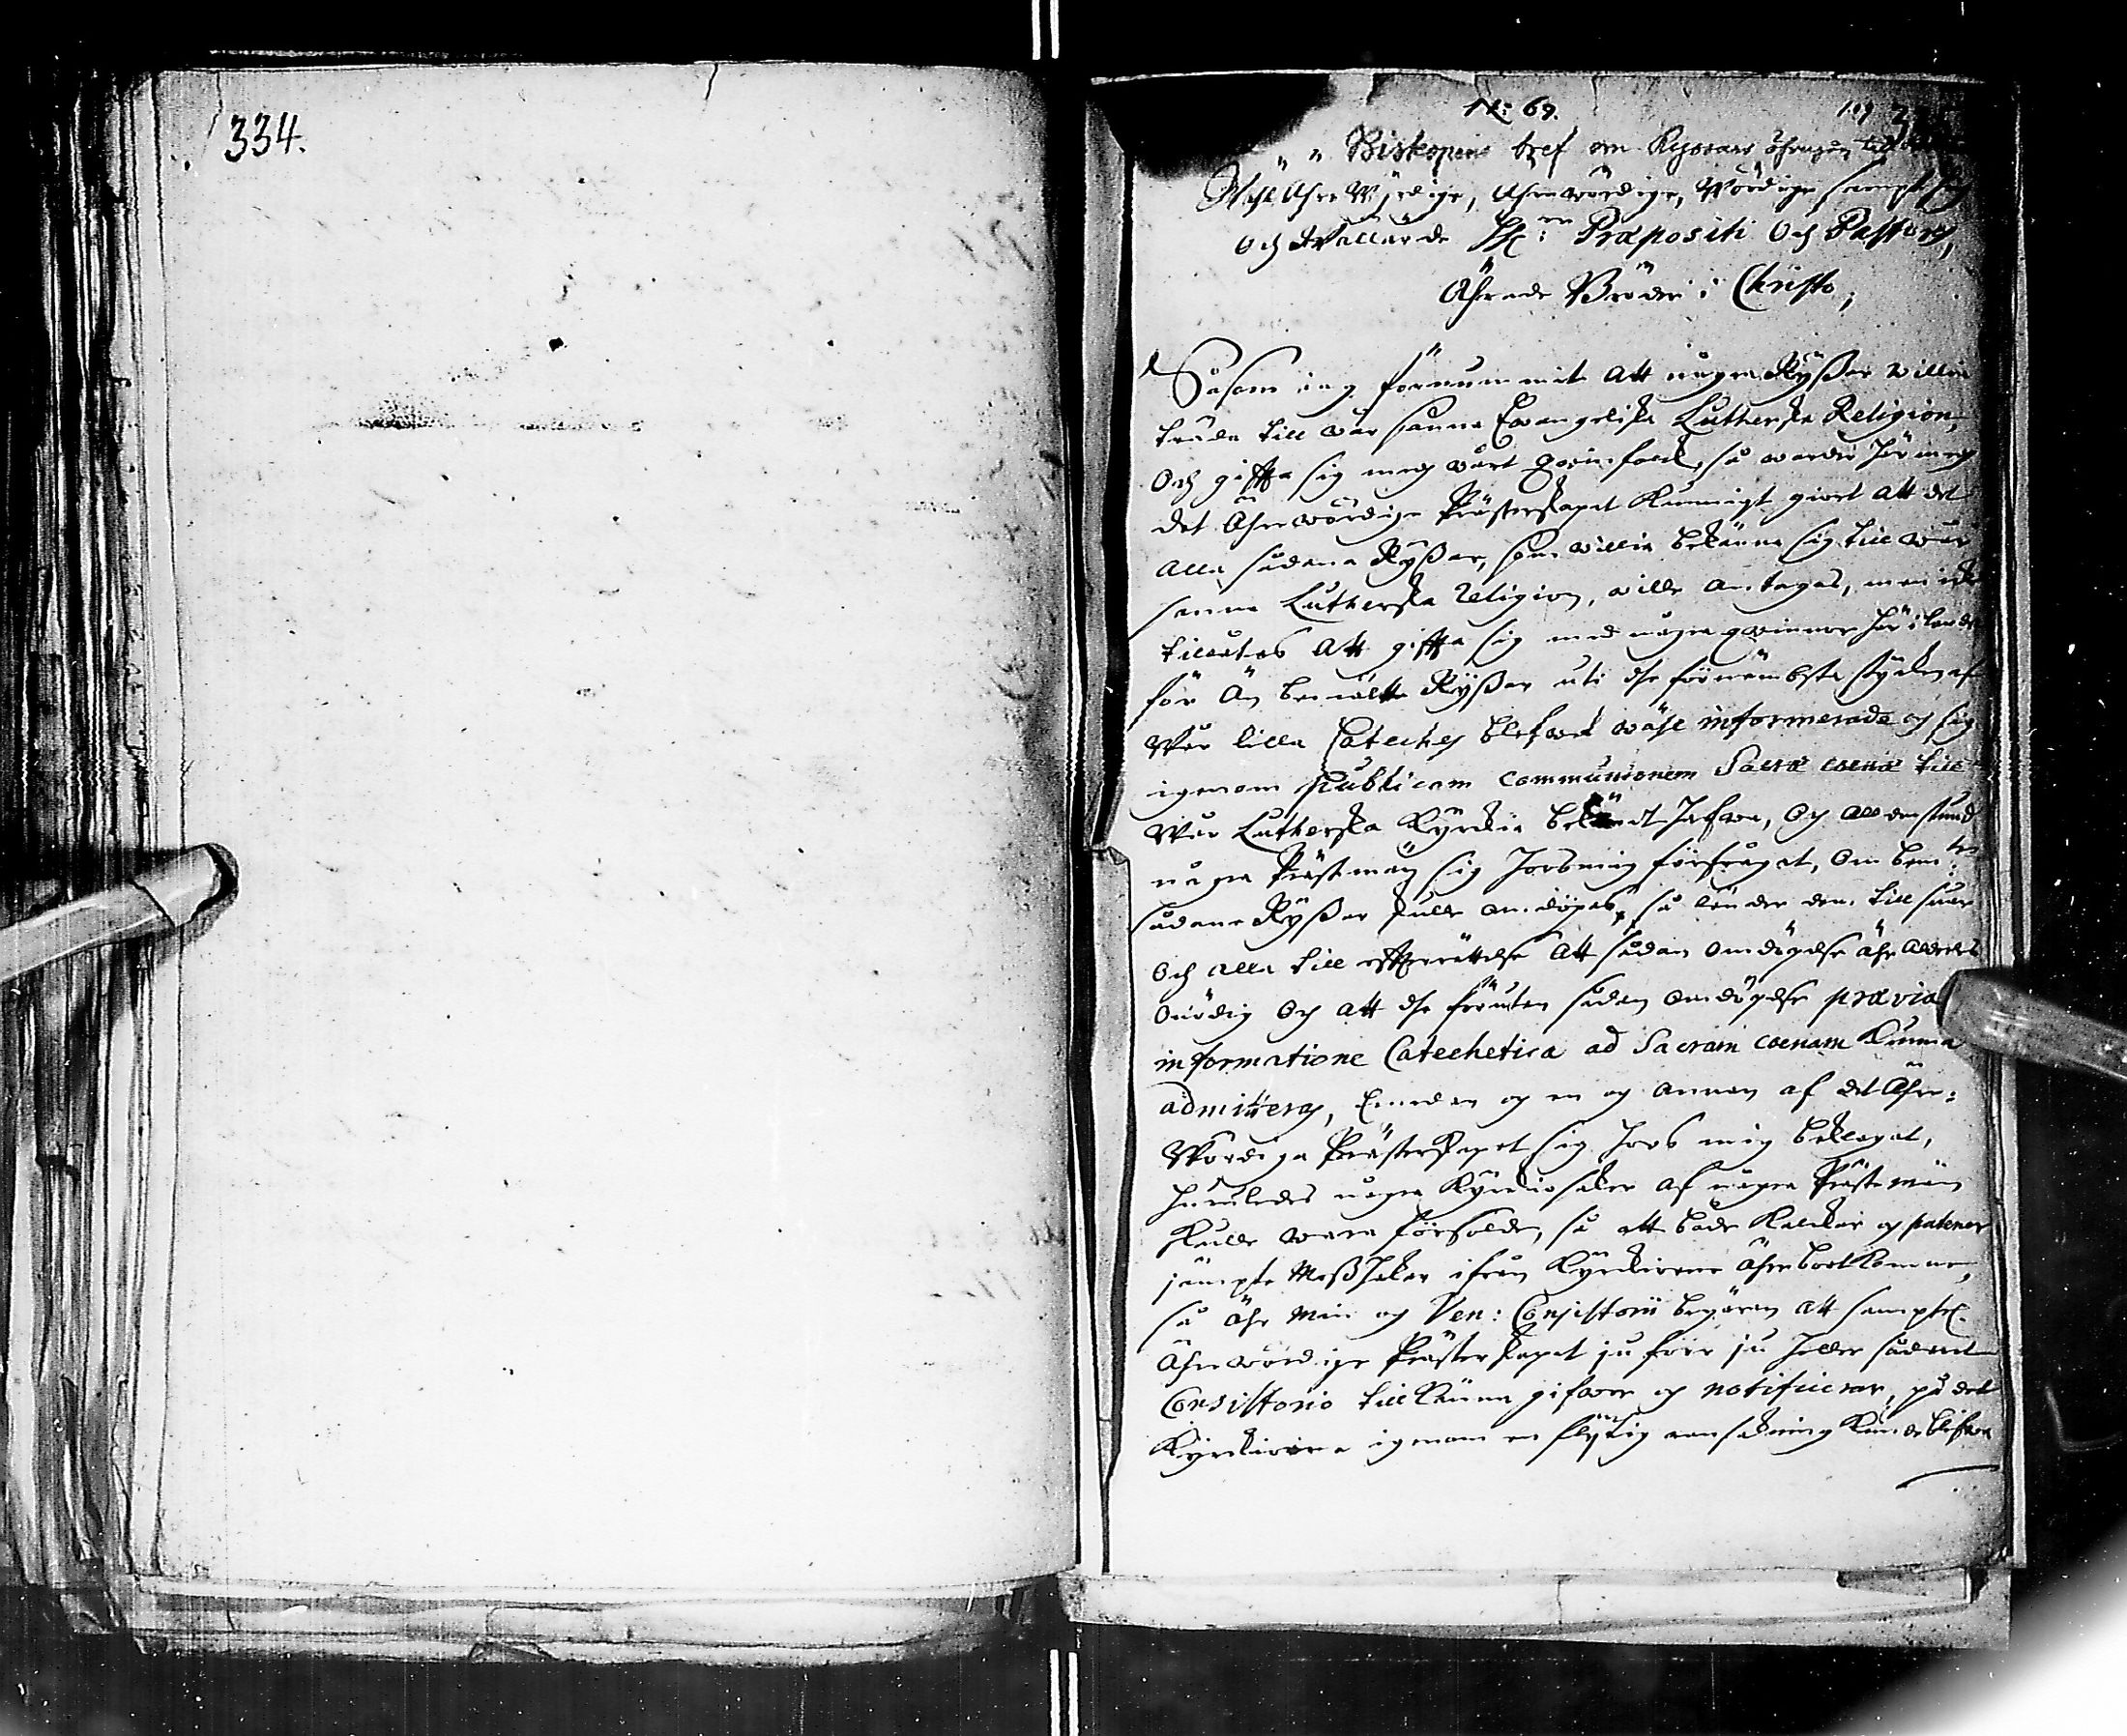 334.
N: 69.
109
Biskopens bref om Ryssars öfvergång till
Wähl Ähre Wyrdige, Ährewördige, Wördige sampt
och Wällärde HH: Præpositi och Pastores,
Ährade Bröder i Christo,
Såsom iag förnummit att någre Rÿßar willia
träda till wår sanna Evangeliska Lutherska Religion,
och gifta sig med wårt qwinfolck, så warder här med
det Ährewördige Prästerskapet kunnigt giort att det
alla sådana Rÿßar, som willia bekänna sig till wår
sanna Lutherska Religion, wille antagas, men icke
tillåtas att gifta sig med någre qwinnor här i landet
för än bemälte Rÿßar uti dhe förnembste stycken af
Wår lilla Cateches blefwet wähl informerade och sig
igenom publicam communionem Sacræ cœnæ till
Wår Lutherska Kyrckia bekändt hafwa, och alldenstund
någre Prästmän sig hoos mig förfrågat, om bem:te
sådane Rÿßar skulle omdöpas, så länder dem till swar
och alla till efterrättelse att sådan omdöpelse ähr aldeles
onödig och att dhe förutan sådan omdöpelse prævia
informatione Catechetica ad Sacram cœnam kunna
admitteras, Emedan och en og annan af det Ähre:
Wördiga Prästerskapet sig hoos mig beklagat,
huruledes några Kyrckiosaker af någre Prästmän
skulle wara försålde, så att både Kalckar og patener
jämpte Meßhakar ifrån Kyrckiorne ähre bortkomne,
så ähr min og Ven: Consistorii begäran att samptl.
Ährewördige Prästerskapet ju förr ju heller sådant
Consistorio tillkänna gifwer og notificerar, på det
Kyrckiorna igenom en flijtig ransakning kunde blifwa